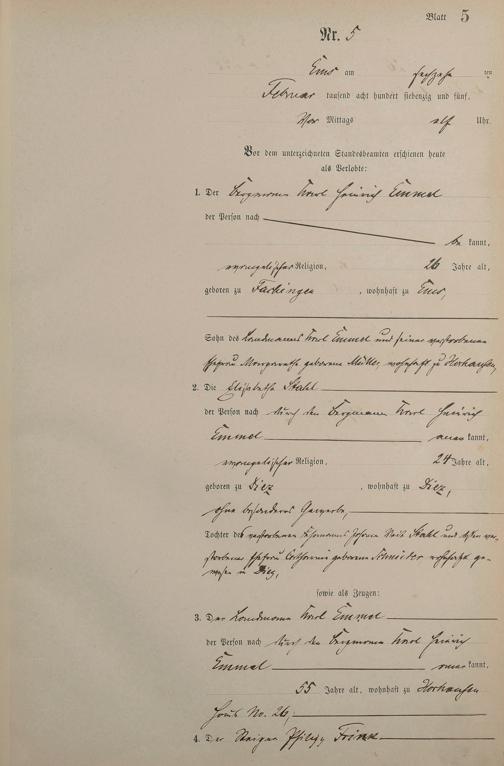 Blatt 5
Nr. 5
Ems am sechzehn ten
Februar tausend acht hundert siebenzig und fünf,
Vor Mittags elf Uhr.
Vor dem unterzeichneten Standesbeamten erschienen heute
als Verlobte:
1. Der Bergmann Karl Heinrich Emmel
der Person nach
be kannt,
evangelischer Religion, 26 Jahre alt,
geboren zu Fachingen, wohnhaft zu Ems,
Sohn des Landmanns Karl Emmel und seiner verstorbenen
Ehefrau Margarethe geborene Müller, wohnhaft zu Horhausen,
2. Die Elisabetha Stahl
der Person nach durch den Bergmann Karl Heinrich
Emmel aner kannt,
evangelischer Religion, 24 Jahre alt,
geboren zu Diez, wohnhaft zu Diez,
ohne besonderes Gewerbe,
Tochter des verstorbenen Johann Stahl und dessen ver-
storbene Ehefrau Catharina geborene Schneider wohnhaft ge-
wesen in Diez,
sowie als Zeugen:
3. Der Landmann Karl Emmel
der Person nach durch den Bergmann Karl Heinrich
Emmel aner kannt,
55 Jahre alt, wohnhaft zu Horhausen
Haus No. 26,
4. Der Steiger Philipp